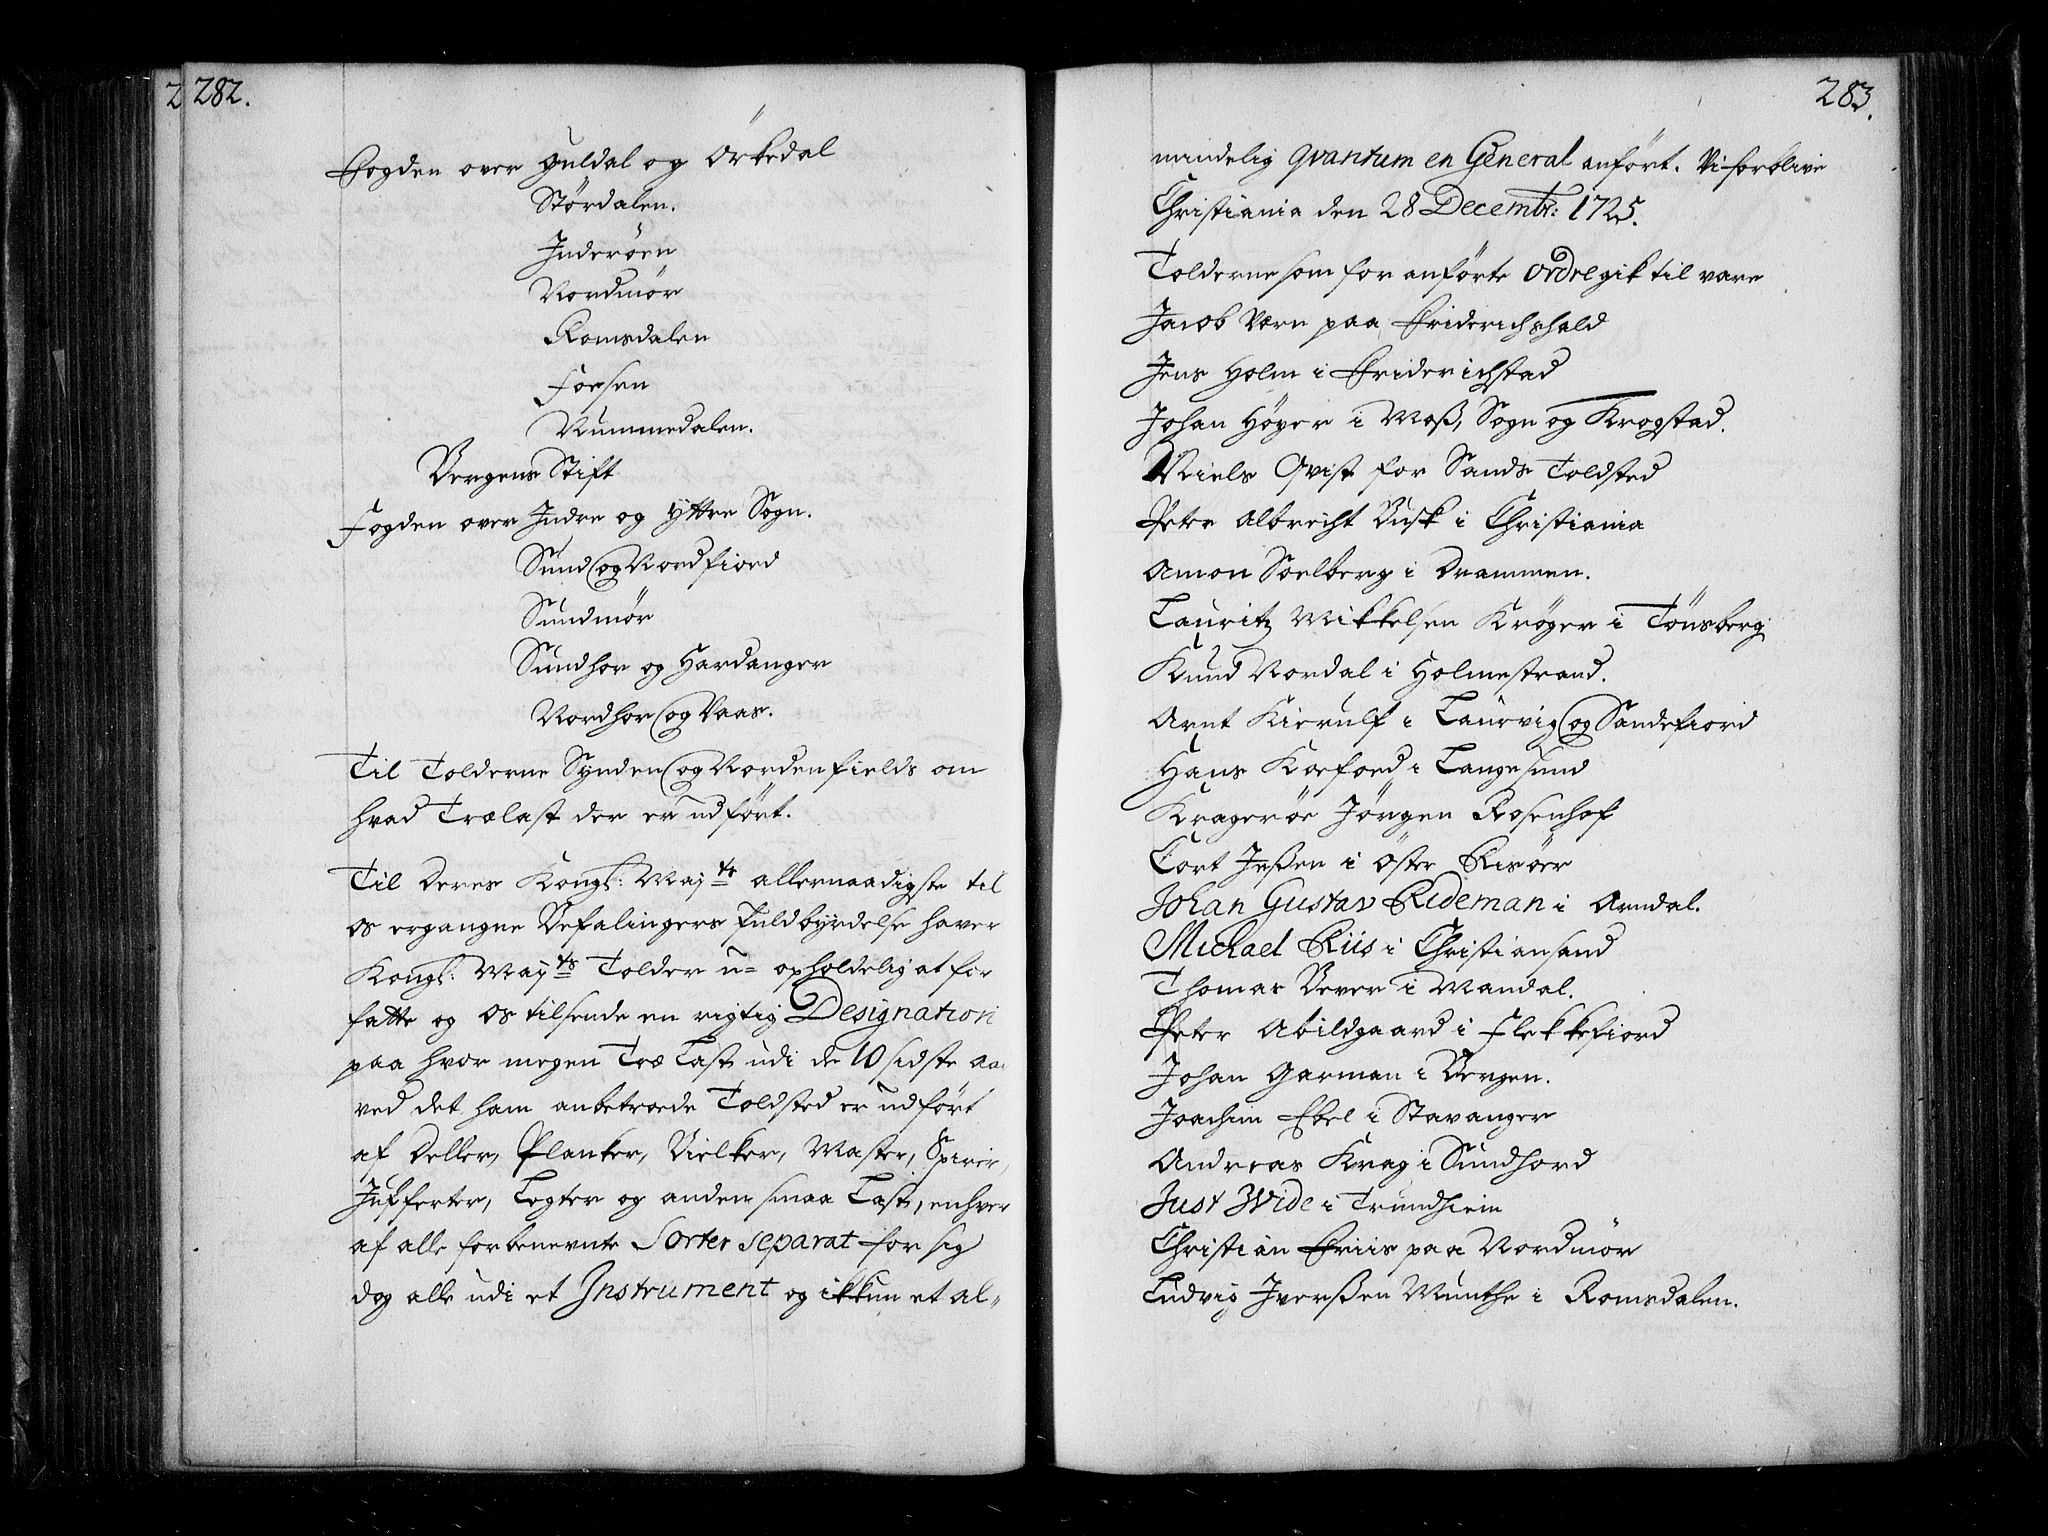 282.
Fogden over Guldal og Örkedal
Stördalen.
Inderöen
Nordmör
Romsdalen
Foesen
Nummedalen.
Bergens Stift
Fogden over Indre og Yttre Sogn.
Sund og Nordfiord
Sundmör
Sundhor og Hardanger
Nordhor og Vaas.
Til Tolderne Synden og Nordenfields om
hvad Trælast der er udfört.
Til Deres Kongl: Mayts allernaadigste til
os ergangne Befalingers Fuldbyrdelse haver
Kongl: Mayts Tolder u= opholdelig at for
fatte og os tilsende en rigtig Designation
paa hvor megen Træ Last udi de 10 sidste aa
ved det ham anbetroede Toldsted er udfört
af Deller, Planker, Bielker, Master, Spirer,
Jufferter, Legter og anden smaa Last, enhver
af alle forbenevnte Sorter separat for sig
dog alle udi et Instrument og ikkun et al=
283.
mindelig Qvantum en General anfört. Vi forblive
Christiania den 28 Decembr: 1725.
Tolderne som for anförte Ordre gik til vare
Jacob Værn paa Friderichshald
Jens Holm i Friderichstad
Johan Höyer i Moß, Sogn og Krogstad.
Niels Qvist for Sands Toldsted
Peter Albrecht Busk i Christiania
Amon Soelberg i Drammen.
Lauritz Mikkelsen Kröger i Tönsberg
Knud Nordal i Holmestrand.
Arnt Kierulf i Laurvig og Sandefiord
Hans Koefoed i Langesund
Krageröe Jörgen Rosenhof
Cort Jeßen i Öster Riisöer
Johan Gustav Rideman i Arndal.
Michael Riis i Christiansand
Thomas Bever i Mandal.
Peter Abildgaard i Flekkefiord
Johan Garman i Bergen.
Joachim Ebel i Stavanger
Andreas Krag i Sundhord
Just Wide i Trundhiem
Christian Friis paa Nordmör
Ludvig Iverßen Munthe i Romsdalen.